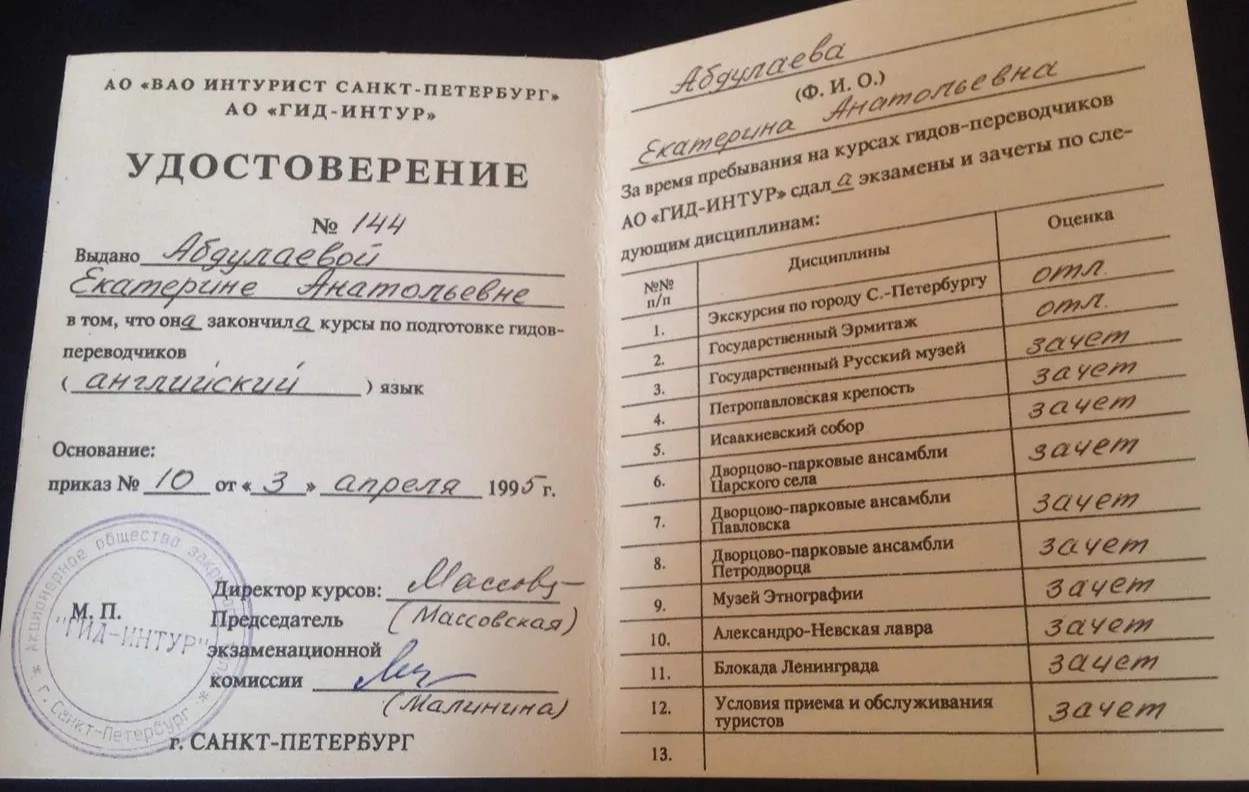 АО «ВАО ИНТУРИСТ САНКТ-ПЕТЕРБУРГ»
АО «ГИД-ИНТУР»
УДОСТОВЕРЕНИЕ
№ 144
Выдано Абдулаевой
Екатерине Анатольевне
в том, что она закончила курсы по подготовке гидов-
переводчиков
(английский) язык
Основание:
приказ № 10 от «3» апреля 1995 г.
Акционерное общество
"ГИД-ИНТУР"
* г. Санкт-Петербург *
М. П.
Директор курсов:
(Массовская)
Председатель
экзаменационной
комиссии
(Малинина)
г. САНКТ-ПЕТЕРБУРГ
Абдулаева
(Ф. И. О.)
Екатерина Анатольевна
За время пребывания на курсах гидов-переводчиков
АО «ГИД-ИНТУР» сдала экзамены и зачеты по сле-
дующим дисциплинам:
№№ п/п Дисциплины Оценка
1. Экскурсия по городу С.-Петербургу отл.
2. Государственный Эрмитаж отл.
3. Государственный Русский музей зачет
4. Петропавловская крепость зачет
5. Исаакиевский собор зачет
6. Дворцово-парковые ансамбли зачет
Царского села
7. Дворцово-парковые ансамбли зачет
Павловска
8. Дворцово-парковые ансамбли зачет
Петродворца
9. Музей Этнографии зачет
10. Александро-Невская лавра зачет
11. Блокада Ленинграда зачет
12. Условия приема и обслуживания зачет
туристов
13.